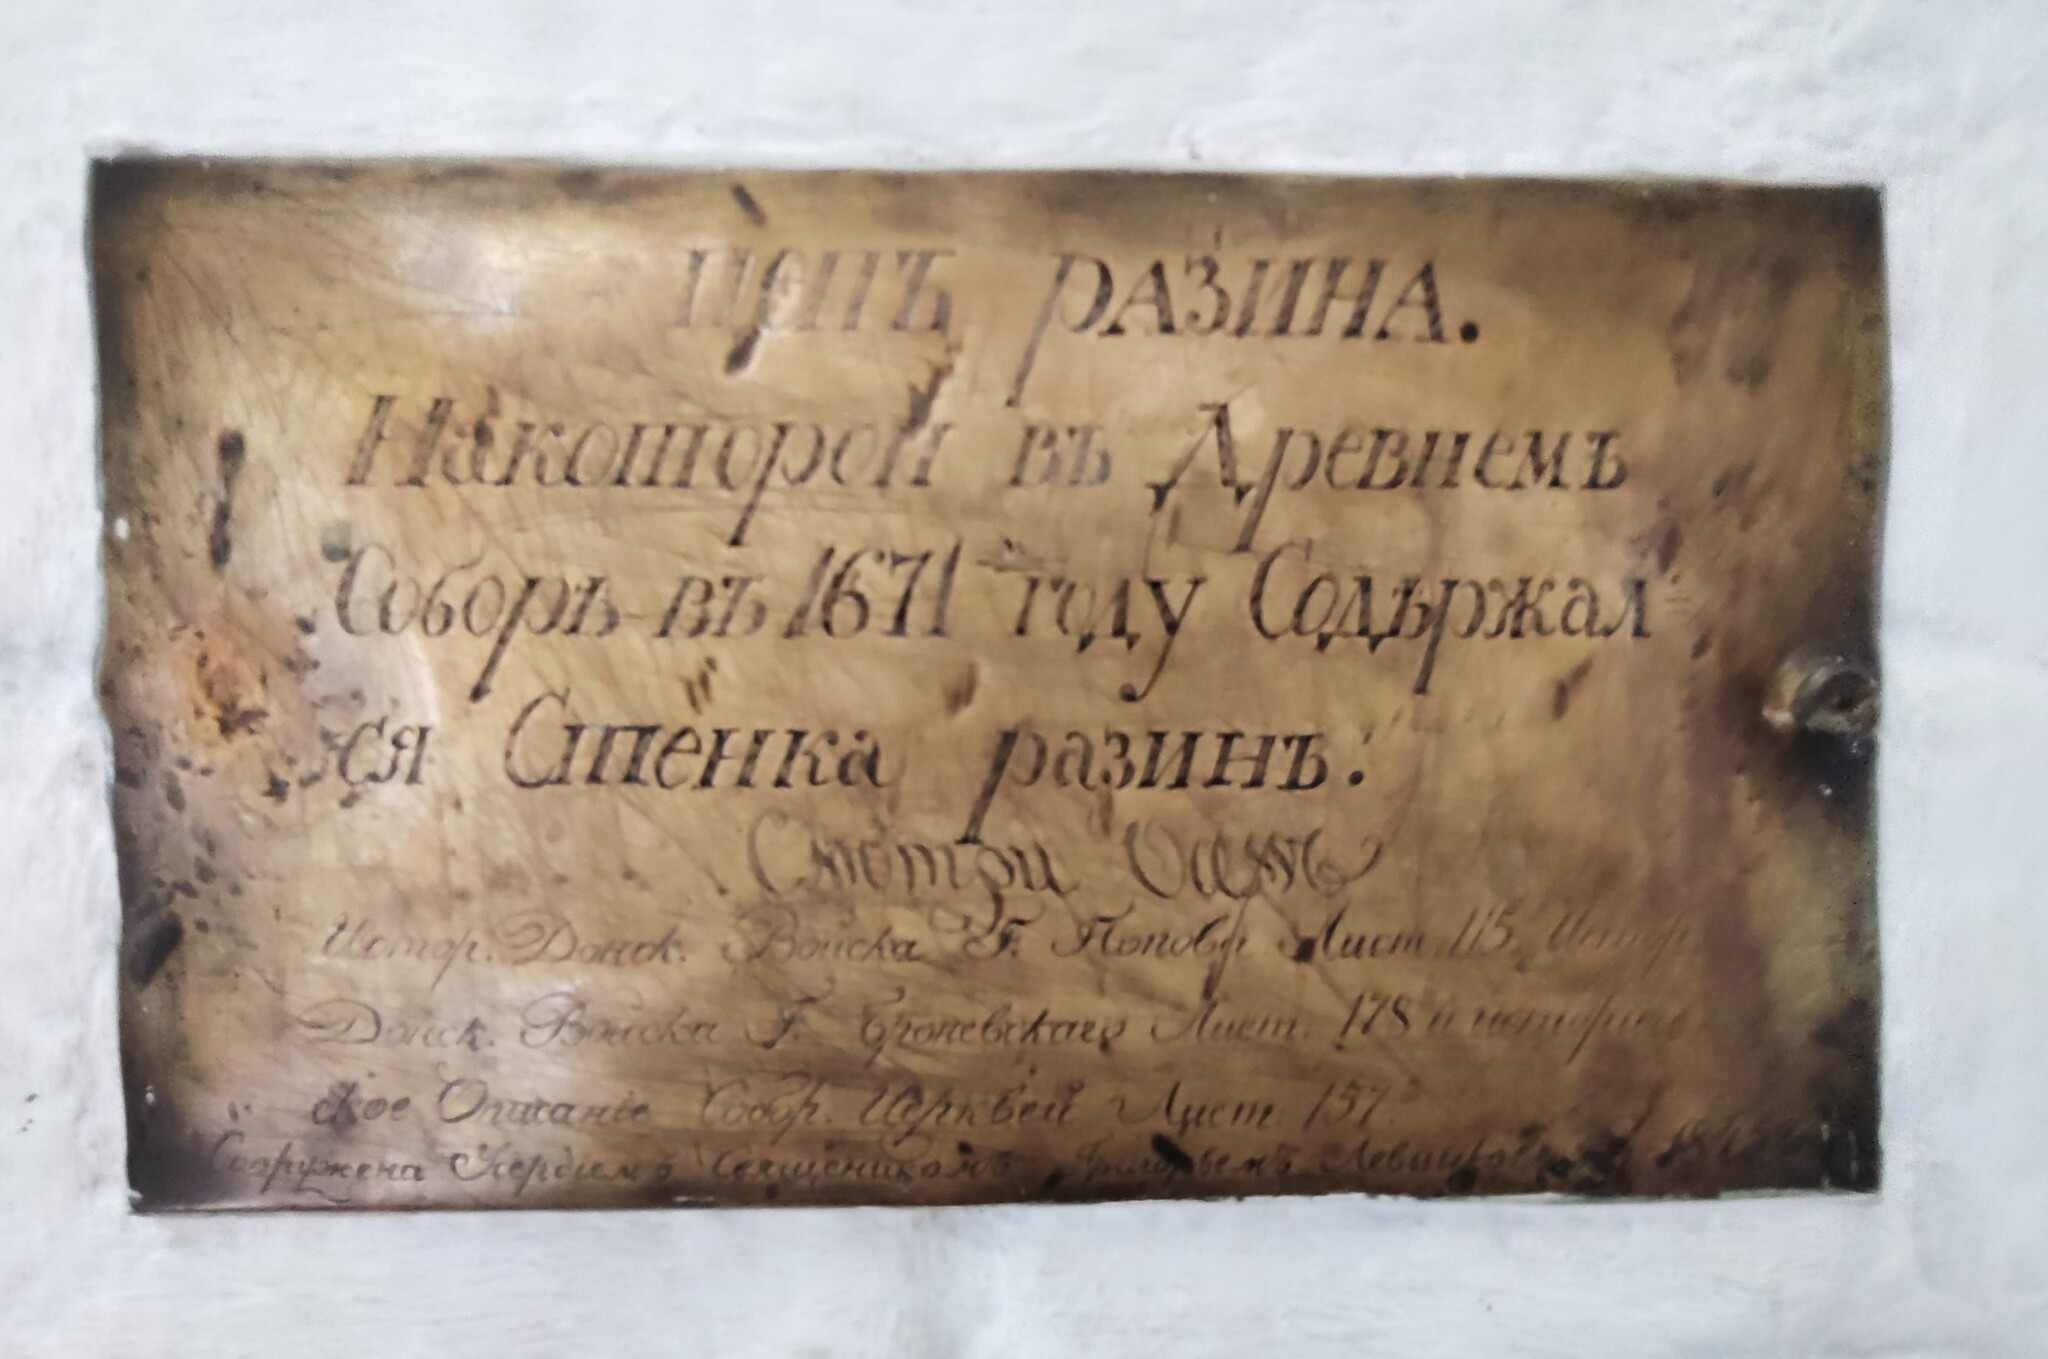 цепъ разина.
На которой въ Древнемъ
Соборѣ въ 1671 году Содѣржал=
ся Стенка разинъ:
Смотри
Истор. Донск. Войска Г. Попова Лист. 115. Истор.
Донск. Войска Г. Броневскаго Лист. 178 и историче
ское Описанїе Собор. Церквей Лист. 157.
Сооружена Священикомъ Григорьемъ